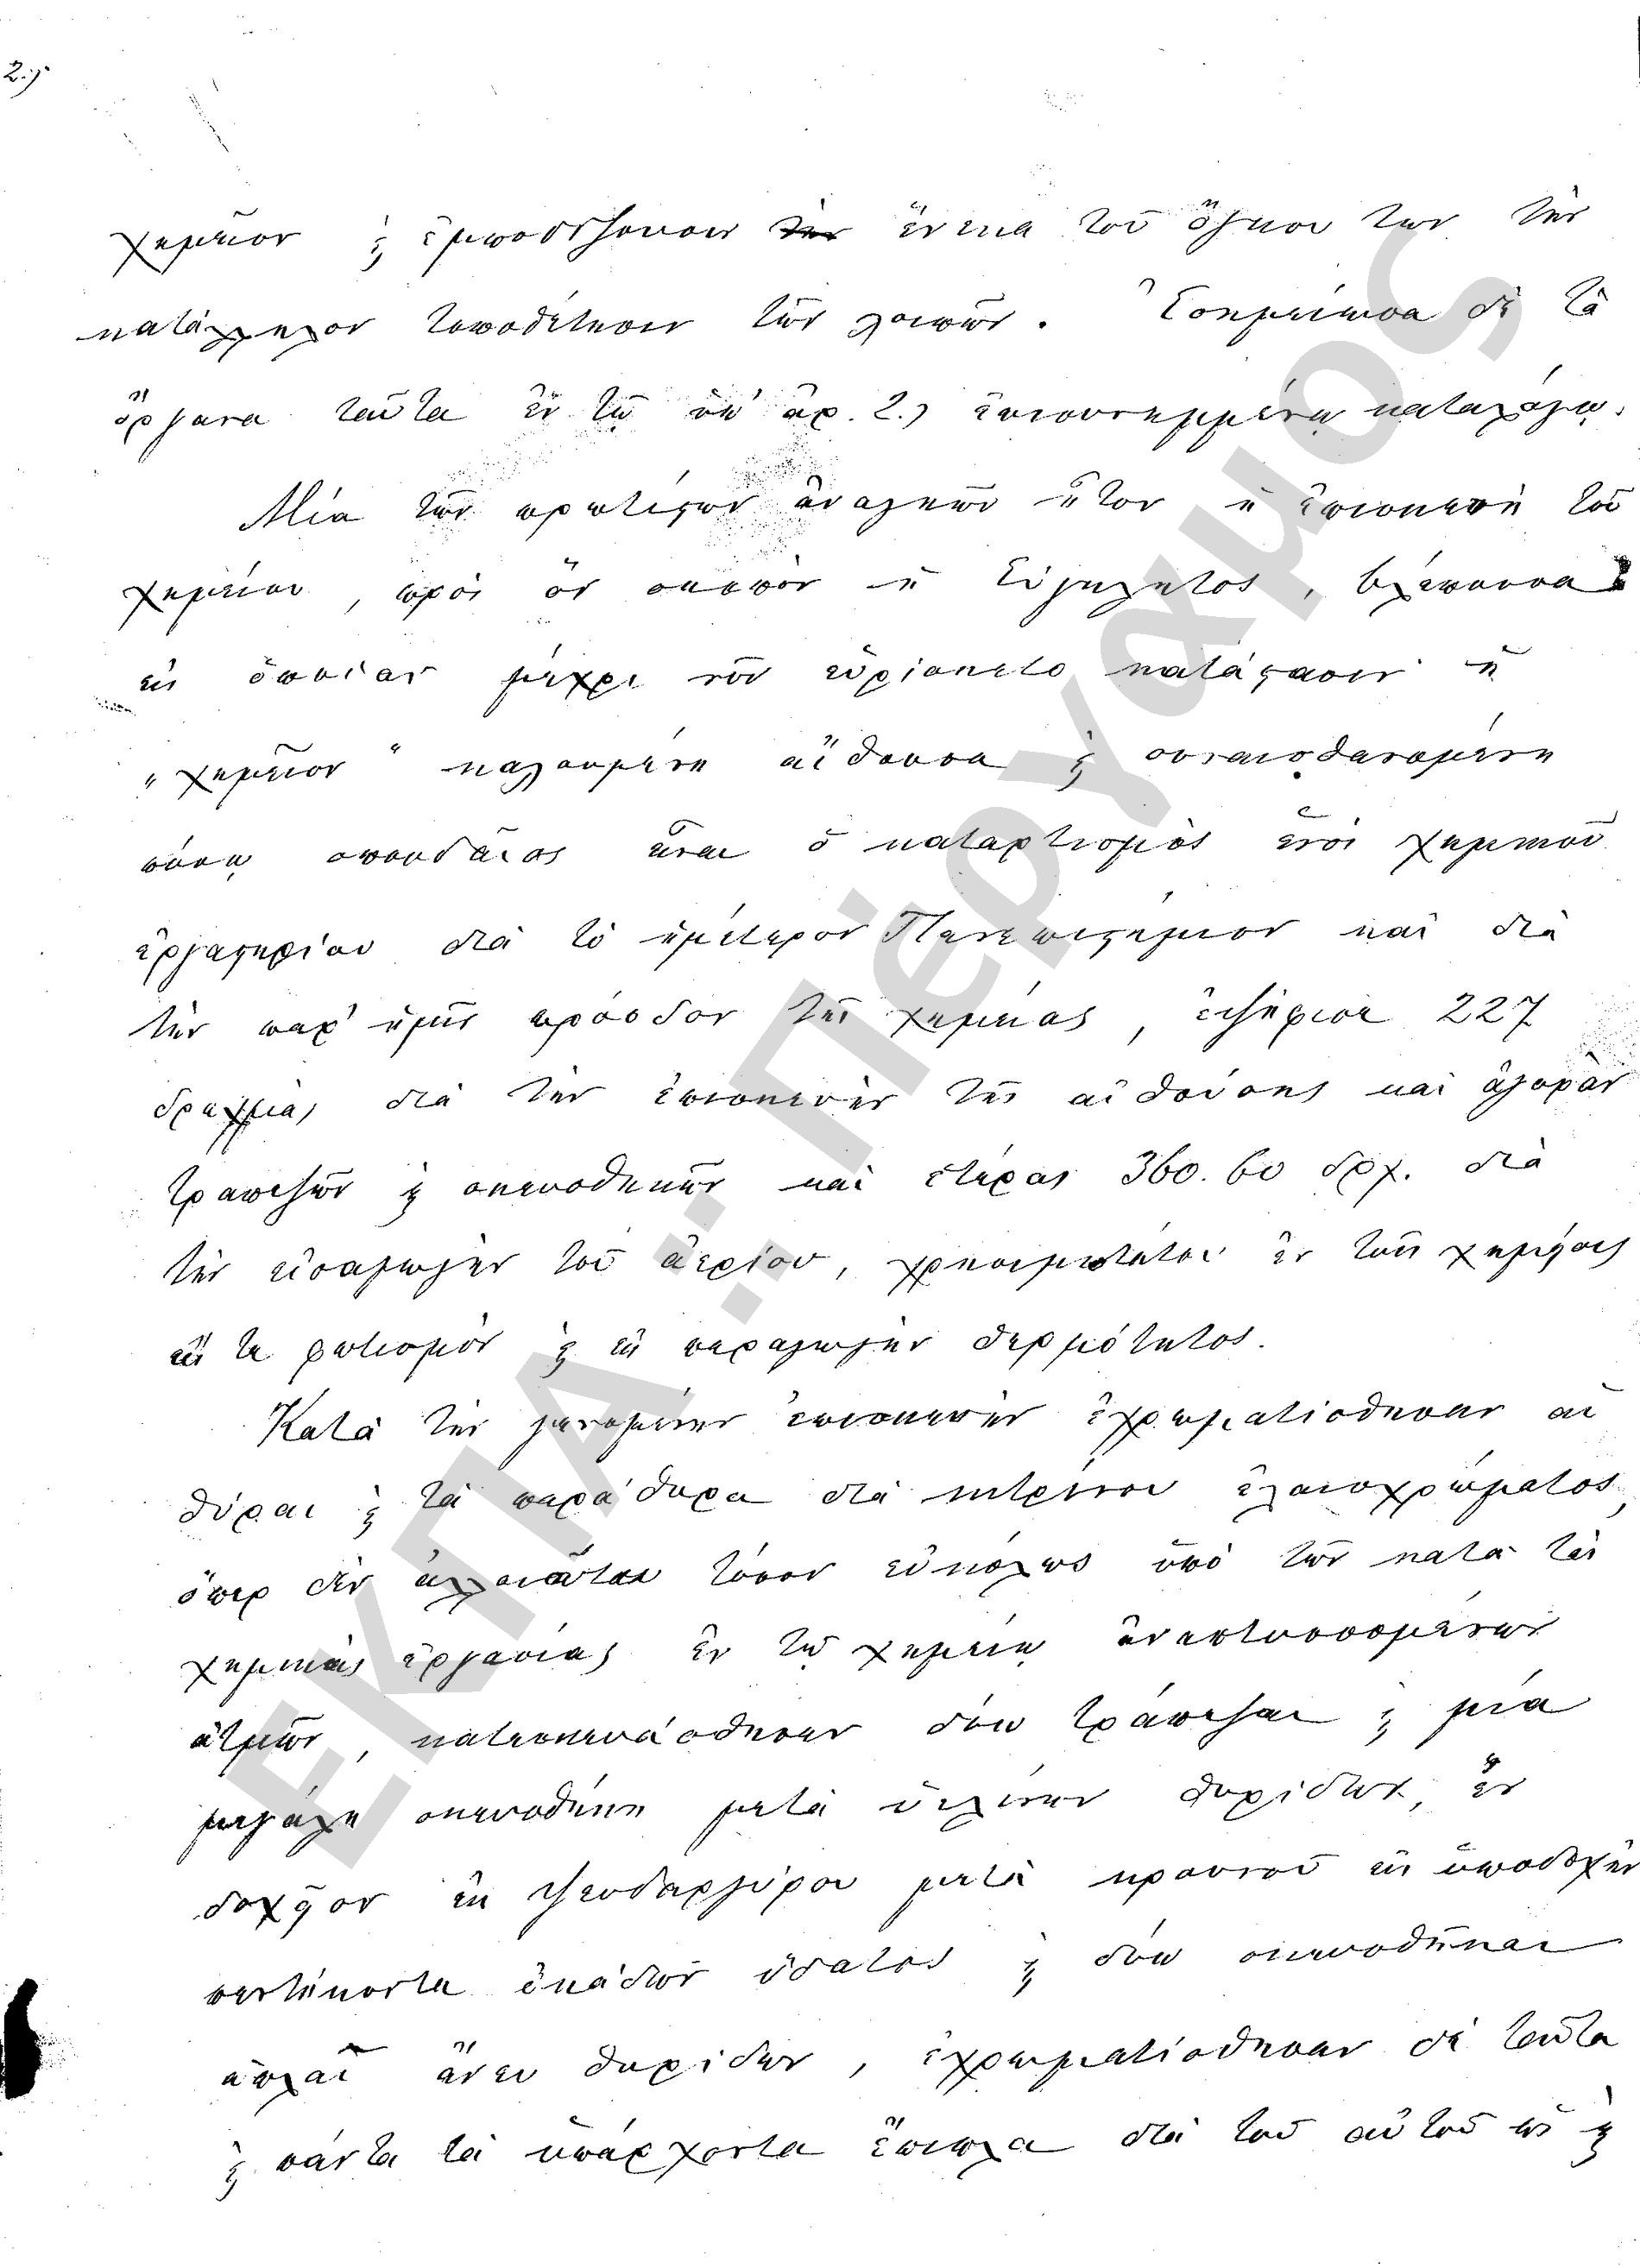 2.)
χημεῖον ϗ ἐμποδίζουσιν τὴν ἕνεκα τοῦ ὄγκου των τὴν
κατάλληλον τοποθέτησιν τῶν λοιπῶν. Ἐσημείωσα δὲ τὰ
ὄργανα ταῦτα ἐν τῷ ὑπ' ἀρ. 2.) ἐπισυνημμένῳ καταλόγῳ.
Μία τῶν πρωτίστων ἀναγκῶν ἦτον ἡ ἐπισκευὴ τοῦ
χημείου, πρὸς ὃν σκοπὸν ἡ Σύγκλητος, βλέπουσα
εἰς ὁποίαν μέχρι νῦν εὑρίσκετο κατάστασιν ἡ
„χημεῖον“ καλουμένη αἴθουσα ϗ συναισθανομένη
πόσῳ σπουδαῖος εἶναι ὁ καταρτισμὸς ἑνὸς χημικοῦ
ἐργαστηρίου διὰ τὸ ἡμέτερον Πανεπιστήμιον καὶ διὰ
τὴν παρ' ἡμῖν πρόοδον τῆς χημείας, ἐψήφισε 227
δραχμὰς διὰ τὴν ἐπισκευὴν τῆς αἰθούσης καὶ ἀγορὰν
τραπεζῶν ϗ σκευοθηκῶν καὶ ἑτέρας 360.60 δρχ. διὰ
τὴν εἰσαγωγὴν τοῦ ἀερίου, χρησιμωτάτου ἐν τοῖς χημείοις
εἴς τε φωτισμὸν ϗ εἰς παραγωγὴν θερμότητος.
Κατὰ τὴν γενομένην ἐπισκευὴν ἐχρωματίσθησαν αἱ
θύραι ϗ τὰ παράθυρα διὰ κιτρίνου ἐλαιοχρώματος,
ὅπερ δὲν ἀλλοιοῦται τόσον εὐκόλως ὑπὸ τῶν κατὰ τὰς
χημικὰς ἐργασίας ἐν τῷ χημείῳ ἀναπτυσσομένων
ἀτμῶν, κατεσκευάσθησαν δύο τράπεζαι ϗ μία
μεγάλη σκευοθήκη μετὰ ὑελίνων θυρίδων, ἓν
δοχεῖον ἐκ ψευδαργύρου μετὰ κρουνοῦ εἰς ὑποδοχὴν
πεντήκοντα ὀκάδων ὕδατος ϗ δύο σκευοθῆκαι
ἁπλαῖ ἄνευ θυρίδων, ἐχρωματίσθησαν δὲ ταῦτα
ϗ πάντα τὰ ὑπάρχοντα ἔπιπλα διὰ τοῦ αὐτοῦ ὡς ϗ
ΕΚΠΑ:: Πέργαμος